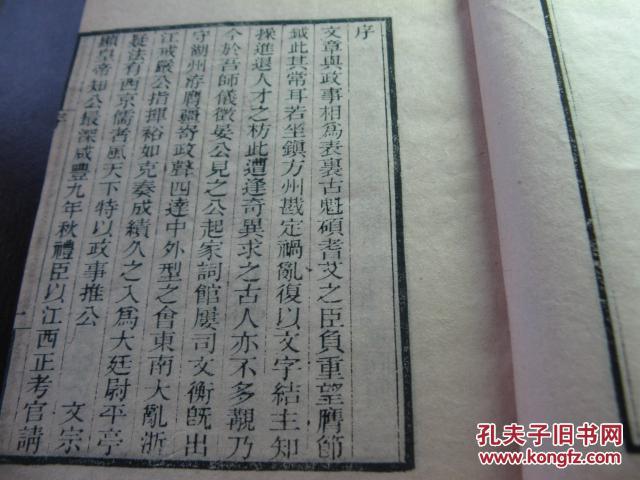 序
文章與政事相爲表裏古魁碩耆艾之臣負重望膺節
鉞此其常耳若坐鎮方州戡定禍亂復以文字結主知
操進退人才之枋此遭逢奇異求之古人亦不多覯乃
今於吾師儀徵晏公見之公起家詞館屢司文衡旣出
守湖州府膺疆寄政聲四達中外型之會東南大亂浙
江戒嚴公指揮裕如克奏成績久之入爲大廷尉平亭
疑法有西京儒者風天下特以政事推公　　文宗
顯皇帝知公最深咸豐九年秋禮臣以江西正考官請
一
孔夫子旧书网
www.kongfz.com